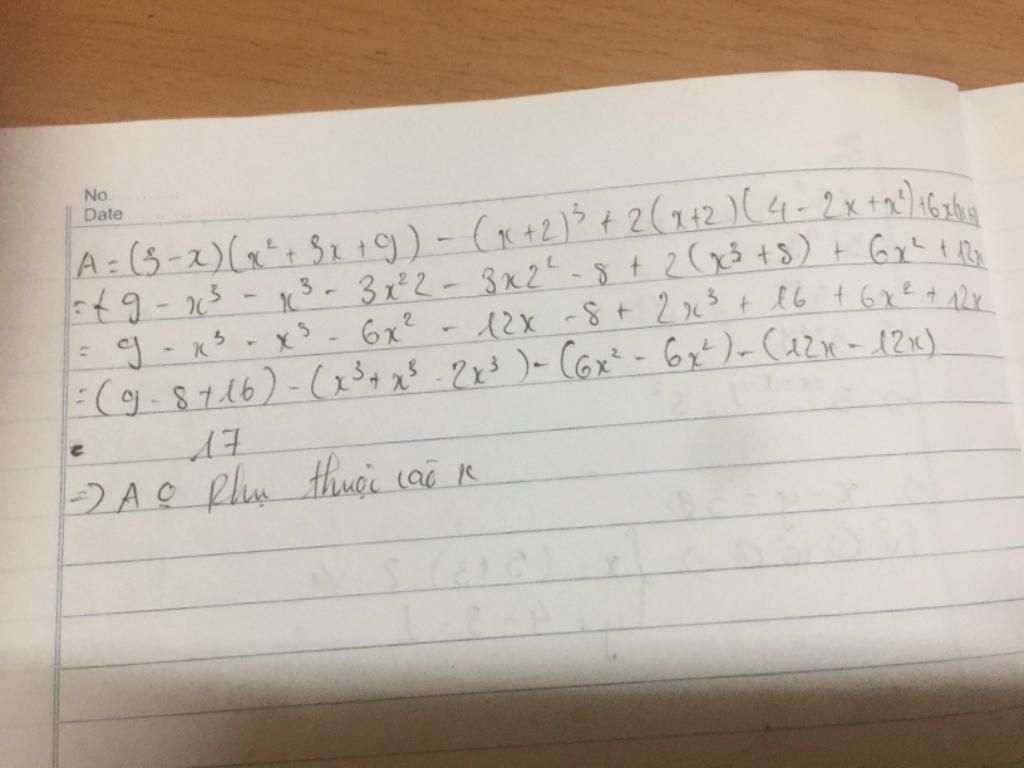 No.
Date
A = (3 - x)(x² + 3x + 9) - (x + 2)³ + 2(x+2)(4 - 2x + x²) + 6x(x+2)
= 9 - x³ - x³ - 3x²2 - 3x2² - 8 + 2(x³ + 8) + 6x² + 12x
= 9 - x³ - x³ - 6x² - 12x - 8 + 2x³ + 16 + 6x² + 12x
= (9 - 8 + 16) - (x³ + x³ - 2x³) - (6x² - 6x²) - (12x - 12x)
= 17
=> A phụ thuộc x